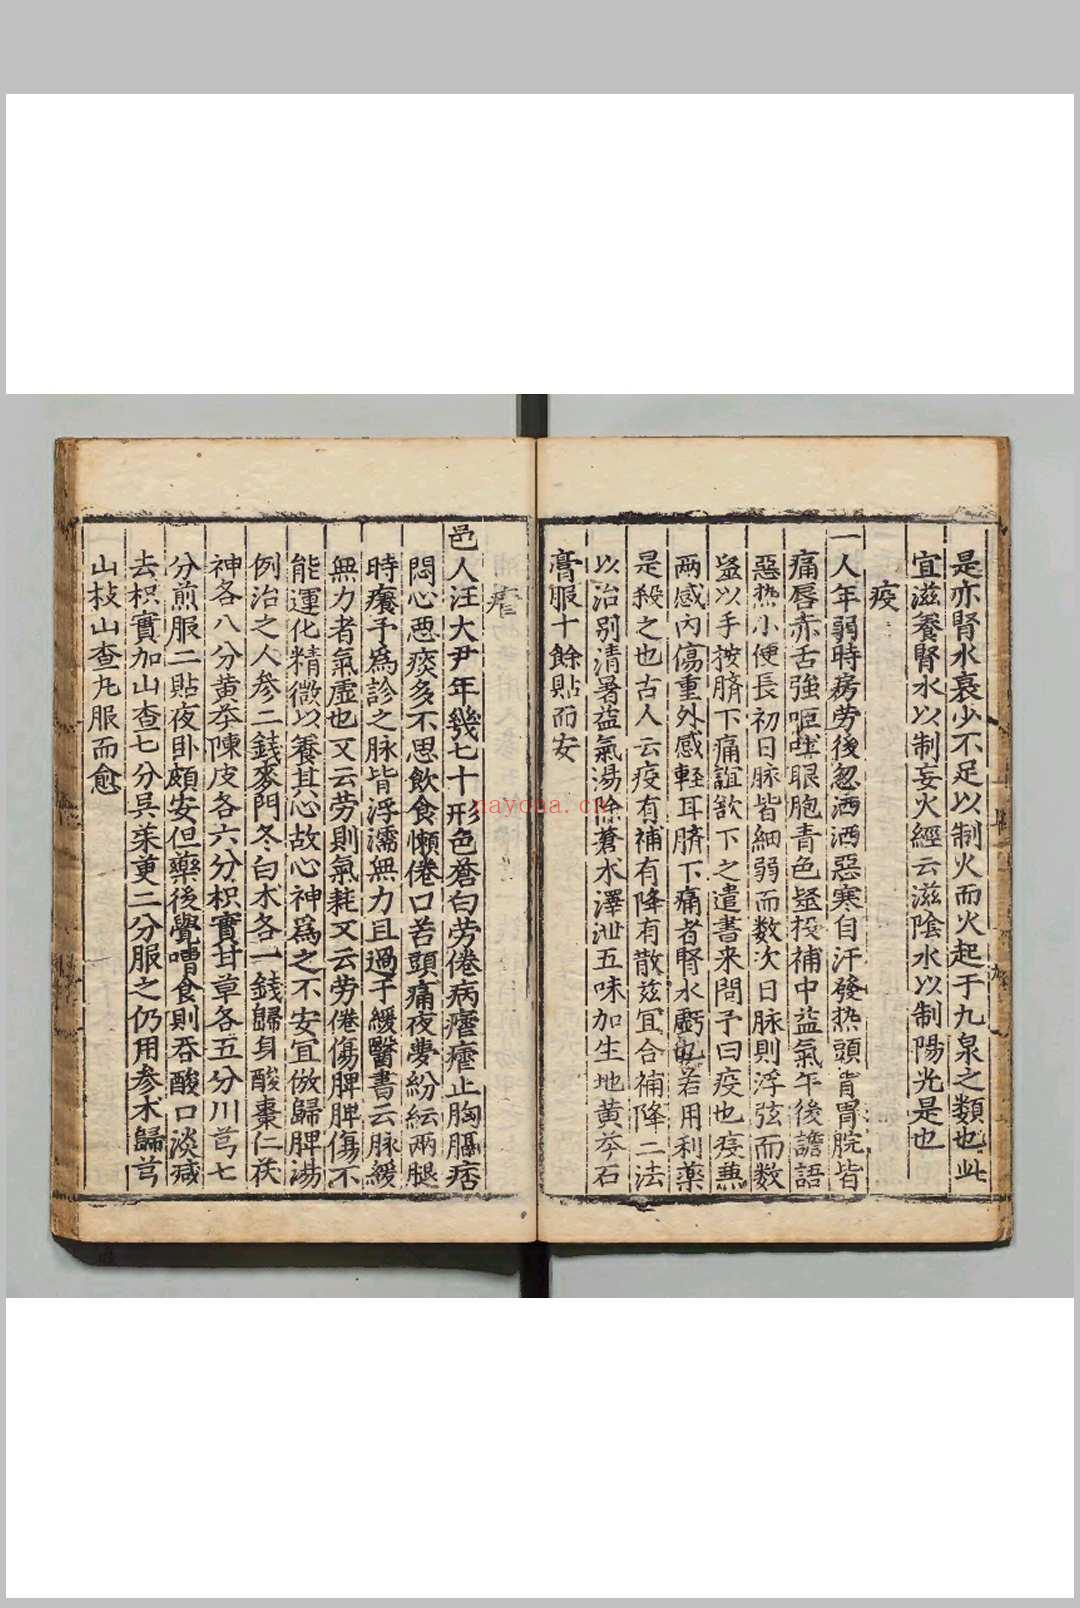 是亦腎水衰少不足以制火而火起于九泉之類也此
宜滋養腎水以制妄火經云滋陰水以制陽光是也
疫
一人年弱時房勞後忽洒洒惡寒自汗發熱頭背胃脘皆
痛唇赤舌強嘔吐眼胞青色醫投補中益氣午後譫語
惡熱小便長初日脉皆細弱而数次日脉則浮弦而数
醫以手按臍下痛議欲下之遣書来問予曰疫也疫兼
两感內傷重外感輕耳臍下痛者腎水虧也若用利藥
是殺之也古人云疫有補有降有散兹宜合補降二法
以治別清暑益氣湯除蒼术澤泄五味加生地黄芩石
膏服十餘貼而安
瘧
邑人汪大尹年幾七十形色蒼白勞倦病瘧瘧止胸膈痞
悶心惡痰多不思飲食懶倦口苦頭痛夜夢紛紜两腿
時癢予爲診之脉皆浮濡無力且過于緩醫書云脉緩
無力者氣虛也又云劳則氣耗又云劳倦傷脾脾傷不
能運化精微以養其心故心神爲之不安宜倣歸脾湯
例治之人参二錢麥門冬白术各一錢歸身酸棗仁茯
神各八分黄芩陳皮各六分枳實甘草各五分川芎七
分煎服二貼夜卧頗安但藥後覺嘈食則吞酸口淡减
去枳實加山查七分吴茱萸二分服之仍用参术歸芎
山枝山查丸服而愈
nayona.cn